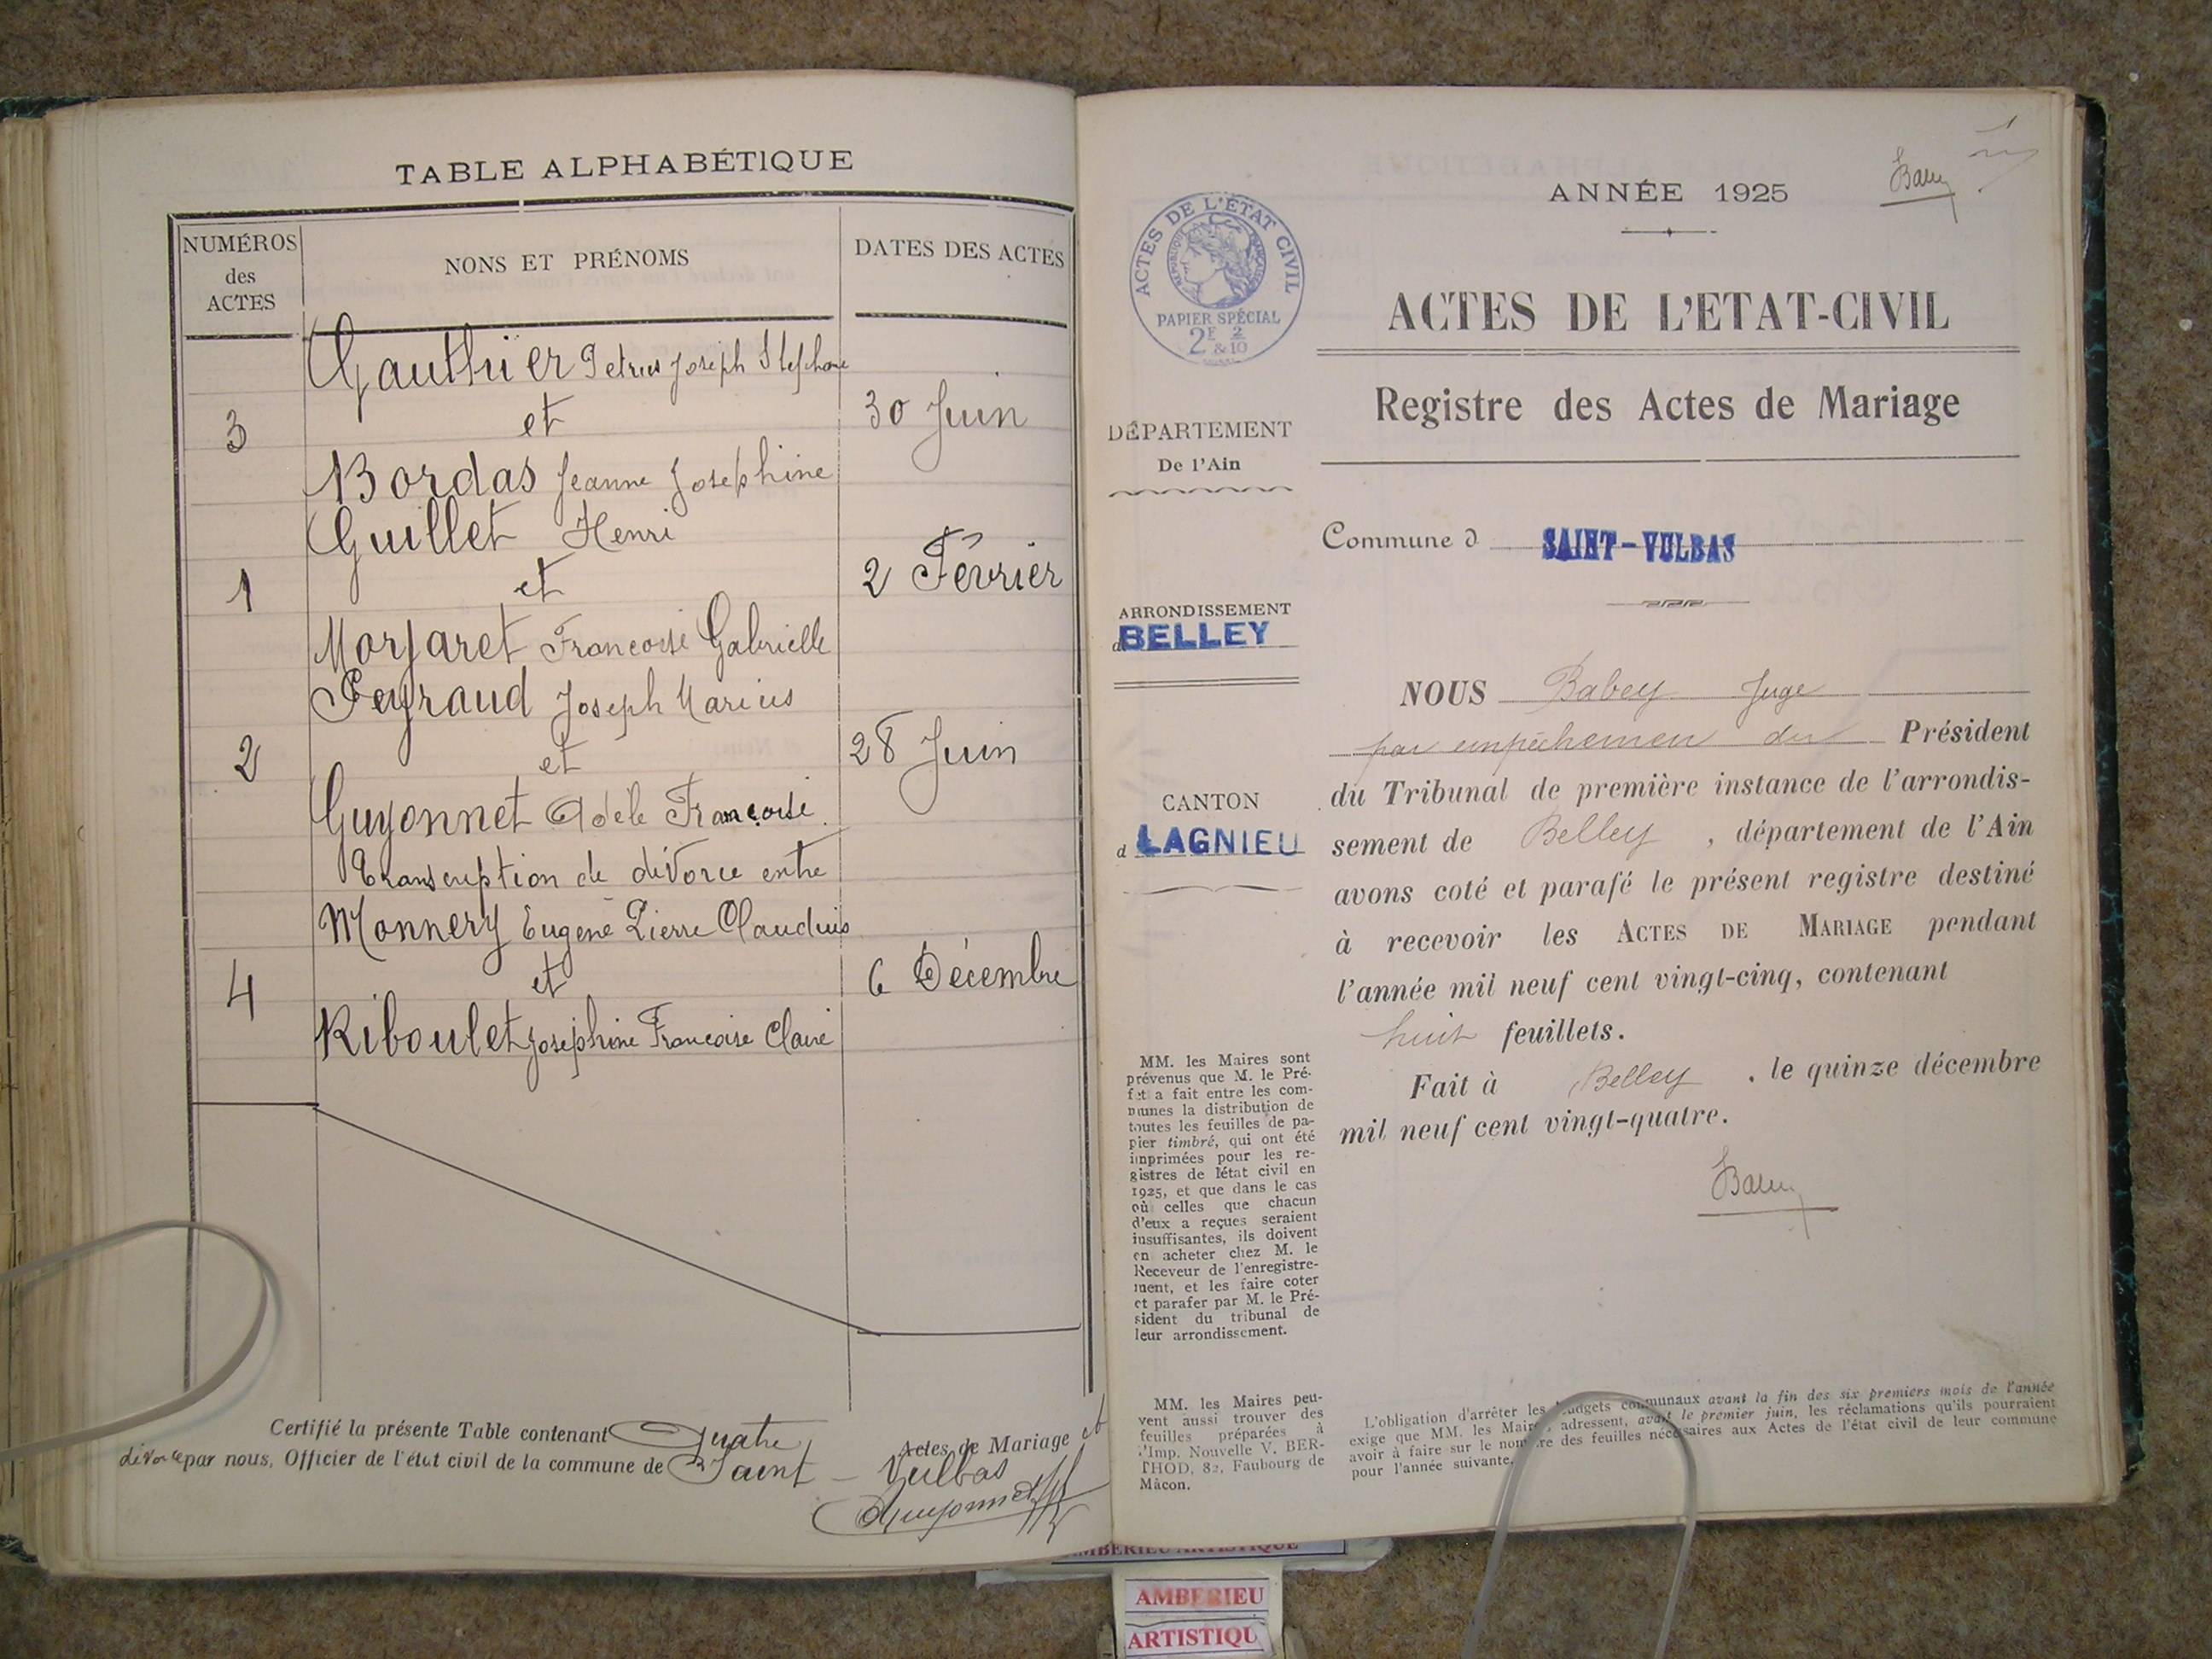 TABLE ALPHABÉTIQUE
NUMÉROS
des
ACTES
NONS ET PRÉNOMS
DATES DES ACTES
Gauthier Petrus Joseph Stephane
3 et 30 Juin
Bordas Jeanne Josephine
Guillet Henri
1 et 2 Février
Morjaret Francoise Gabrielle
Peyraud Joseph Marius
2 et 28 Juin
Guyonnet Adèle Françoise.
Transcription de divorce entre
Monnery Eugene Pierre Claudius
4 et 6 Décembre
Riboulet Josephine Francoise Claire
Certifié la présente Table contenant Quatre Actes de Mariage et
divorce par nous, Officier de l'état civil de la commune de Saint - Vulbas
Guyonnet
ANNÉE 1925
ACTES DE L'ÉTAT CIVIL
RÉPUBLIQUE FRANÇAISE
PAPIER SPÉCIAL
2F 2/10
&
ACTES DE L'ETAT-CIVIL
Registre des Actes de Mariage
DÉPARTEMENT
De l'Ain
Commune d SAINT-VULBAS
ARRONDISSEMENT
d BELLEY
CANTON
d LAGNIEU
NOUS Babey Juge
par empêchement du Président
du Tribunal de première instance de l'arrondis-
sement de Belley, département de l'Ain
avons coté et parafé le présent registre destiné
à recevoir les ACTES DE MARIAGE pendant
l'année mil neuf cent vingt-cinq, contenant
huit feuillets.
Fait à Belley, le quinze décembre
mil neuf cent vingt-quatre.
MM. les Maires sont
prévenus que M. le Pré-
fet a fait entre les com-
munes la distribution de
toutes les feuilles de pa-
pier timbré, qui ont été
imprimées pour les re-
gistres de létat civil en
1925, et que dans le cas
où celles que chacun
d'eux a reçues seraient
insuffisantes, ils doivent
en acheter chez M. le
Receveur de l'enregistre-
ment, et les faire coter
et parafer par M. le Pré-
sident du tribunal de
leur arrondissement.
MM. les Maires peu-
vent aussi trouver des
feuilles préparées à
l'Imp. Nouvelle V. BER-
THOD, 82, Faubourg de
Mâcon.
L'obligation d'arrêter les budgets communaux avant la fin des six premiers mois de l'année
exige que MM. les Maires adressent, avant le premier juin, les réclamations qu'ils pourraient
avoir à faire sur le nombre des feuilles nécessaires aux Actes de l'état civil de leur commune
pour l'année suivante.
AMBERIEU ARTISTIQUE
AMBERIEU
ARTISTIQU